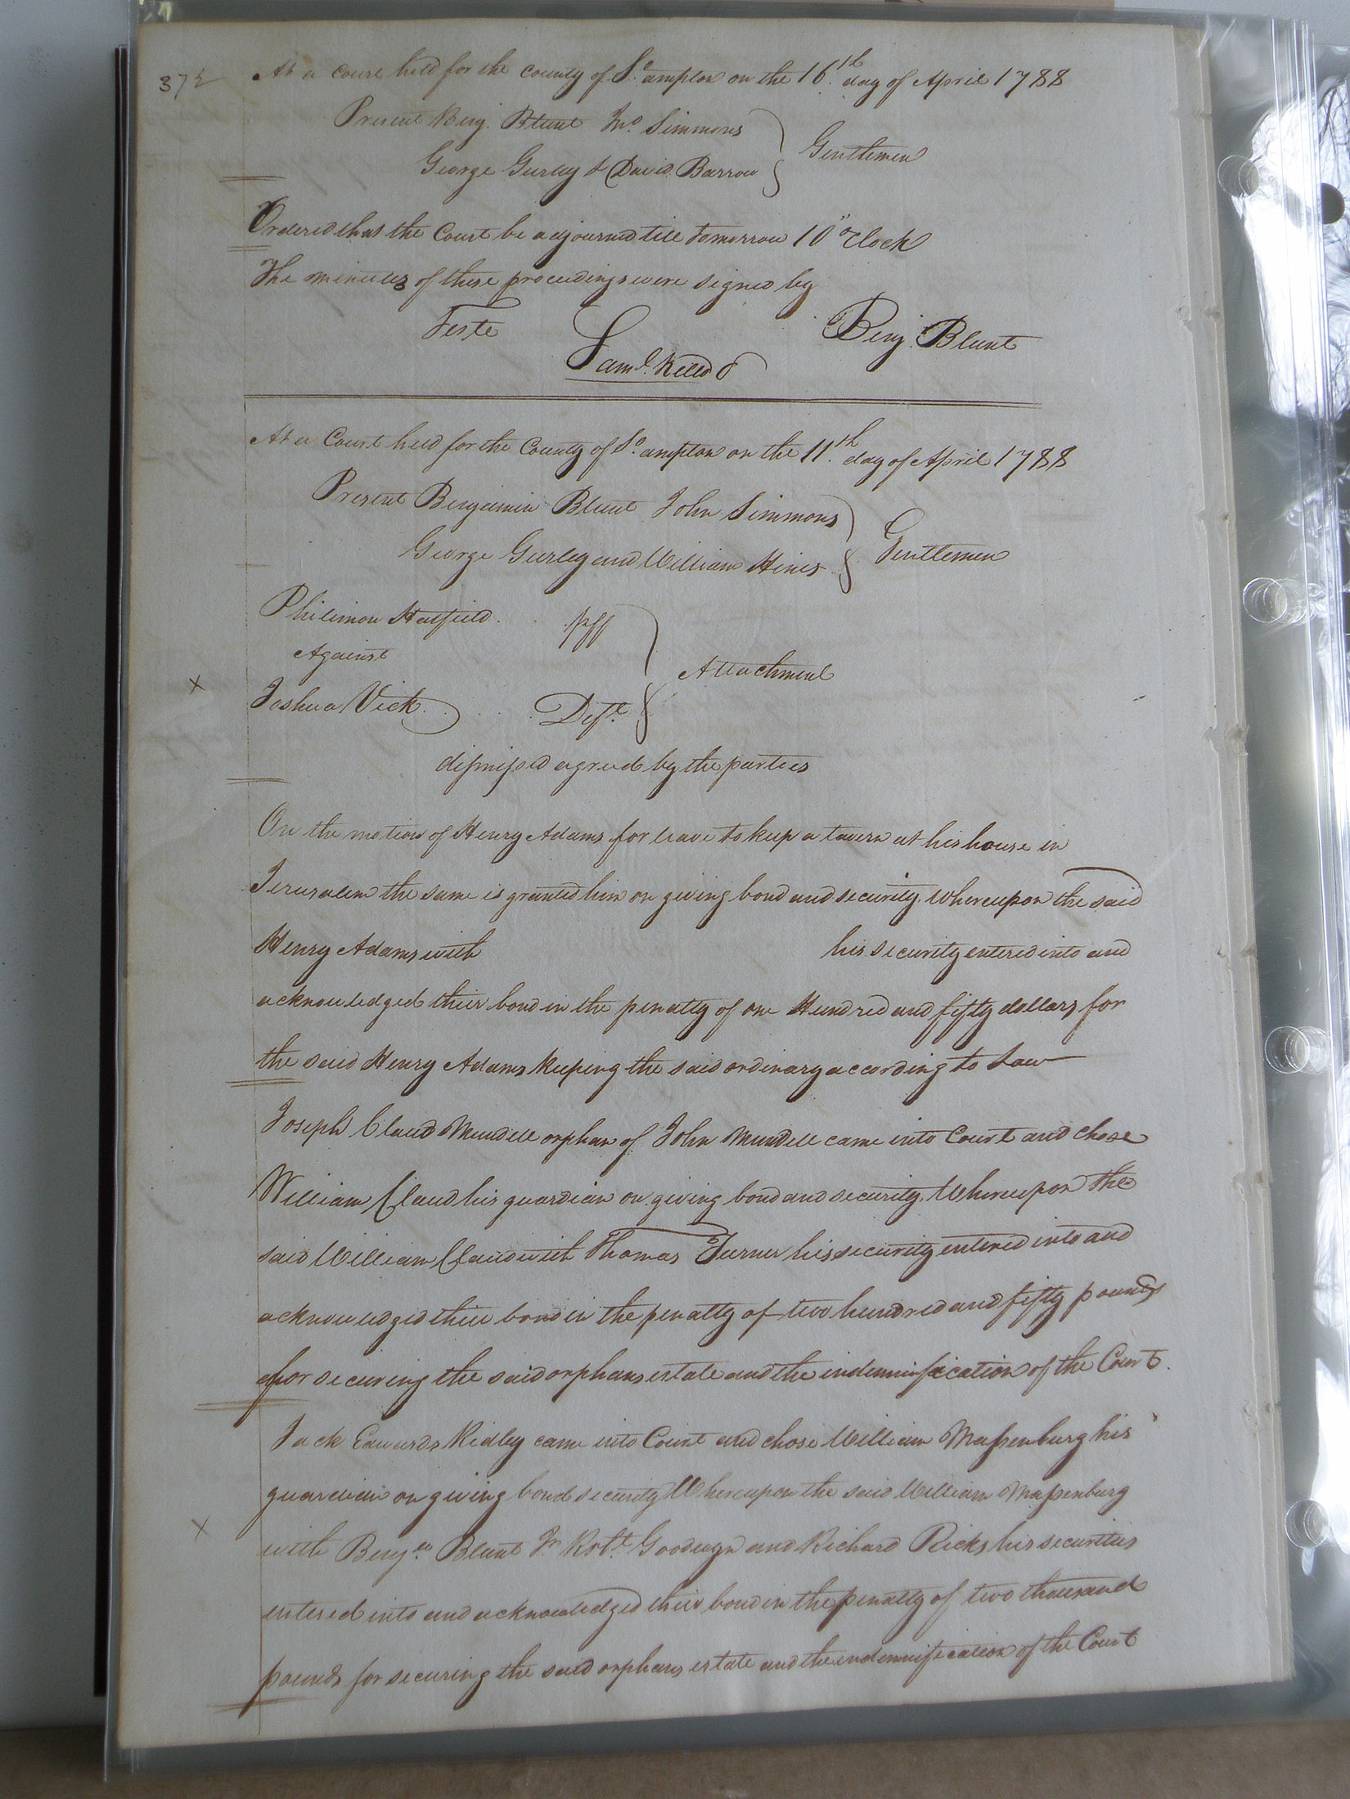 37½
At a Court held for the County of So.ampton on the 16th day of April 1788
Present Benj. Blunt Jno Simmons
George Gurley & David Barrow } Gentlemen
Ordered that the Court be adjourned till tomorrow 10 oClock
The minutes of these proceedings were signed by
Teste
Benj. Blunt
Saml. Kello
At a Court held for the County of So.ampton on the 11th day of April 1788
Present Benjamin Blunt John Simmons
George Gurley and William Hines } Gentlemen
Philimon Hatfield plff
Against
Attachment
Joshua Vick Deft.
dismissed agreed by the parties
On the motion of Henry Adams for leave to keep a tavern at his house in
Jerusalem the same is granted him on giving bond and security. Whereupon the said
Henry Adams with his security entered into and
acknowledged their bond in the penalty of one Hundred and fifty dollars for
the said Henry Adams keeping the said ordinary according to Law
Joseph Claud Mundell orphan of John Mundell came into Court and chose
William Claud his guardian on giving bond and security. Whereupon the
said William Claud with Thomas Turner his security entered into and
acknowledged their bond in the penalty of two hundred and fifty pounds
for securing the said orphans estate and the indemnification of the Court.
Jack Edwards Ridley came into Court and chose William Massenburg his
guardian on giving bond security Whereupon the said William Massenburg
with Benjn Blunt Jr Robt. Goodwyn and Richard Ricks his securities
entered into and acknowledged their bond in the penalty of two thousand
pounds for securing the said orphans estate and the indemnification of the Court